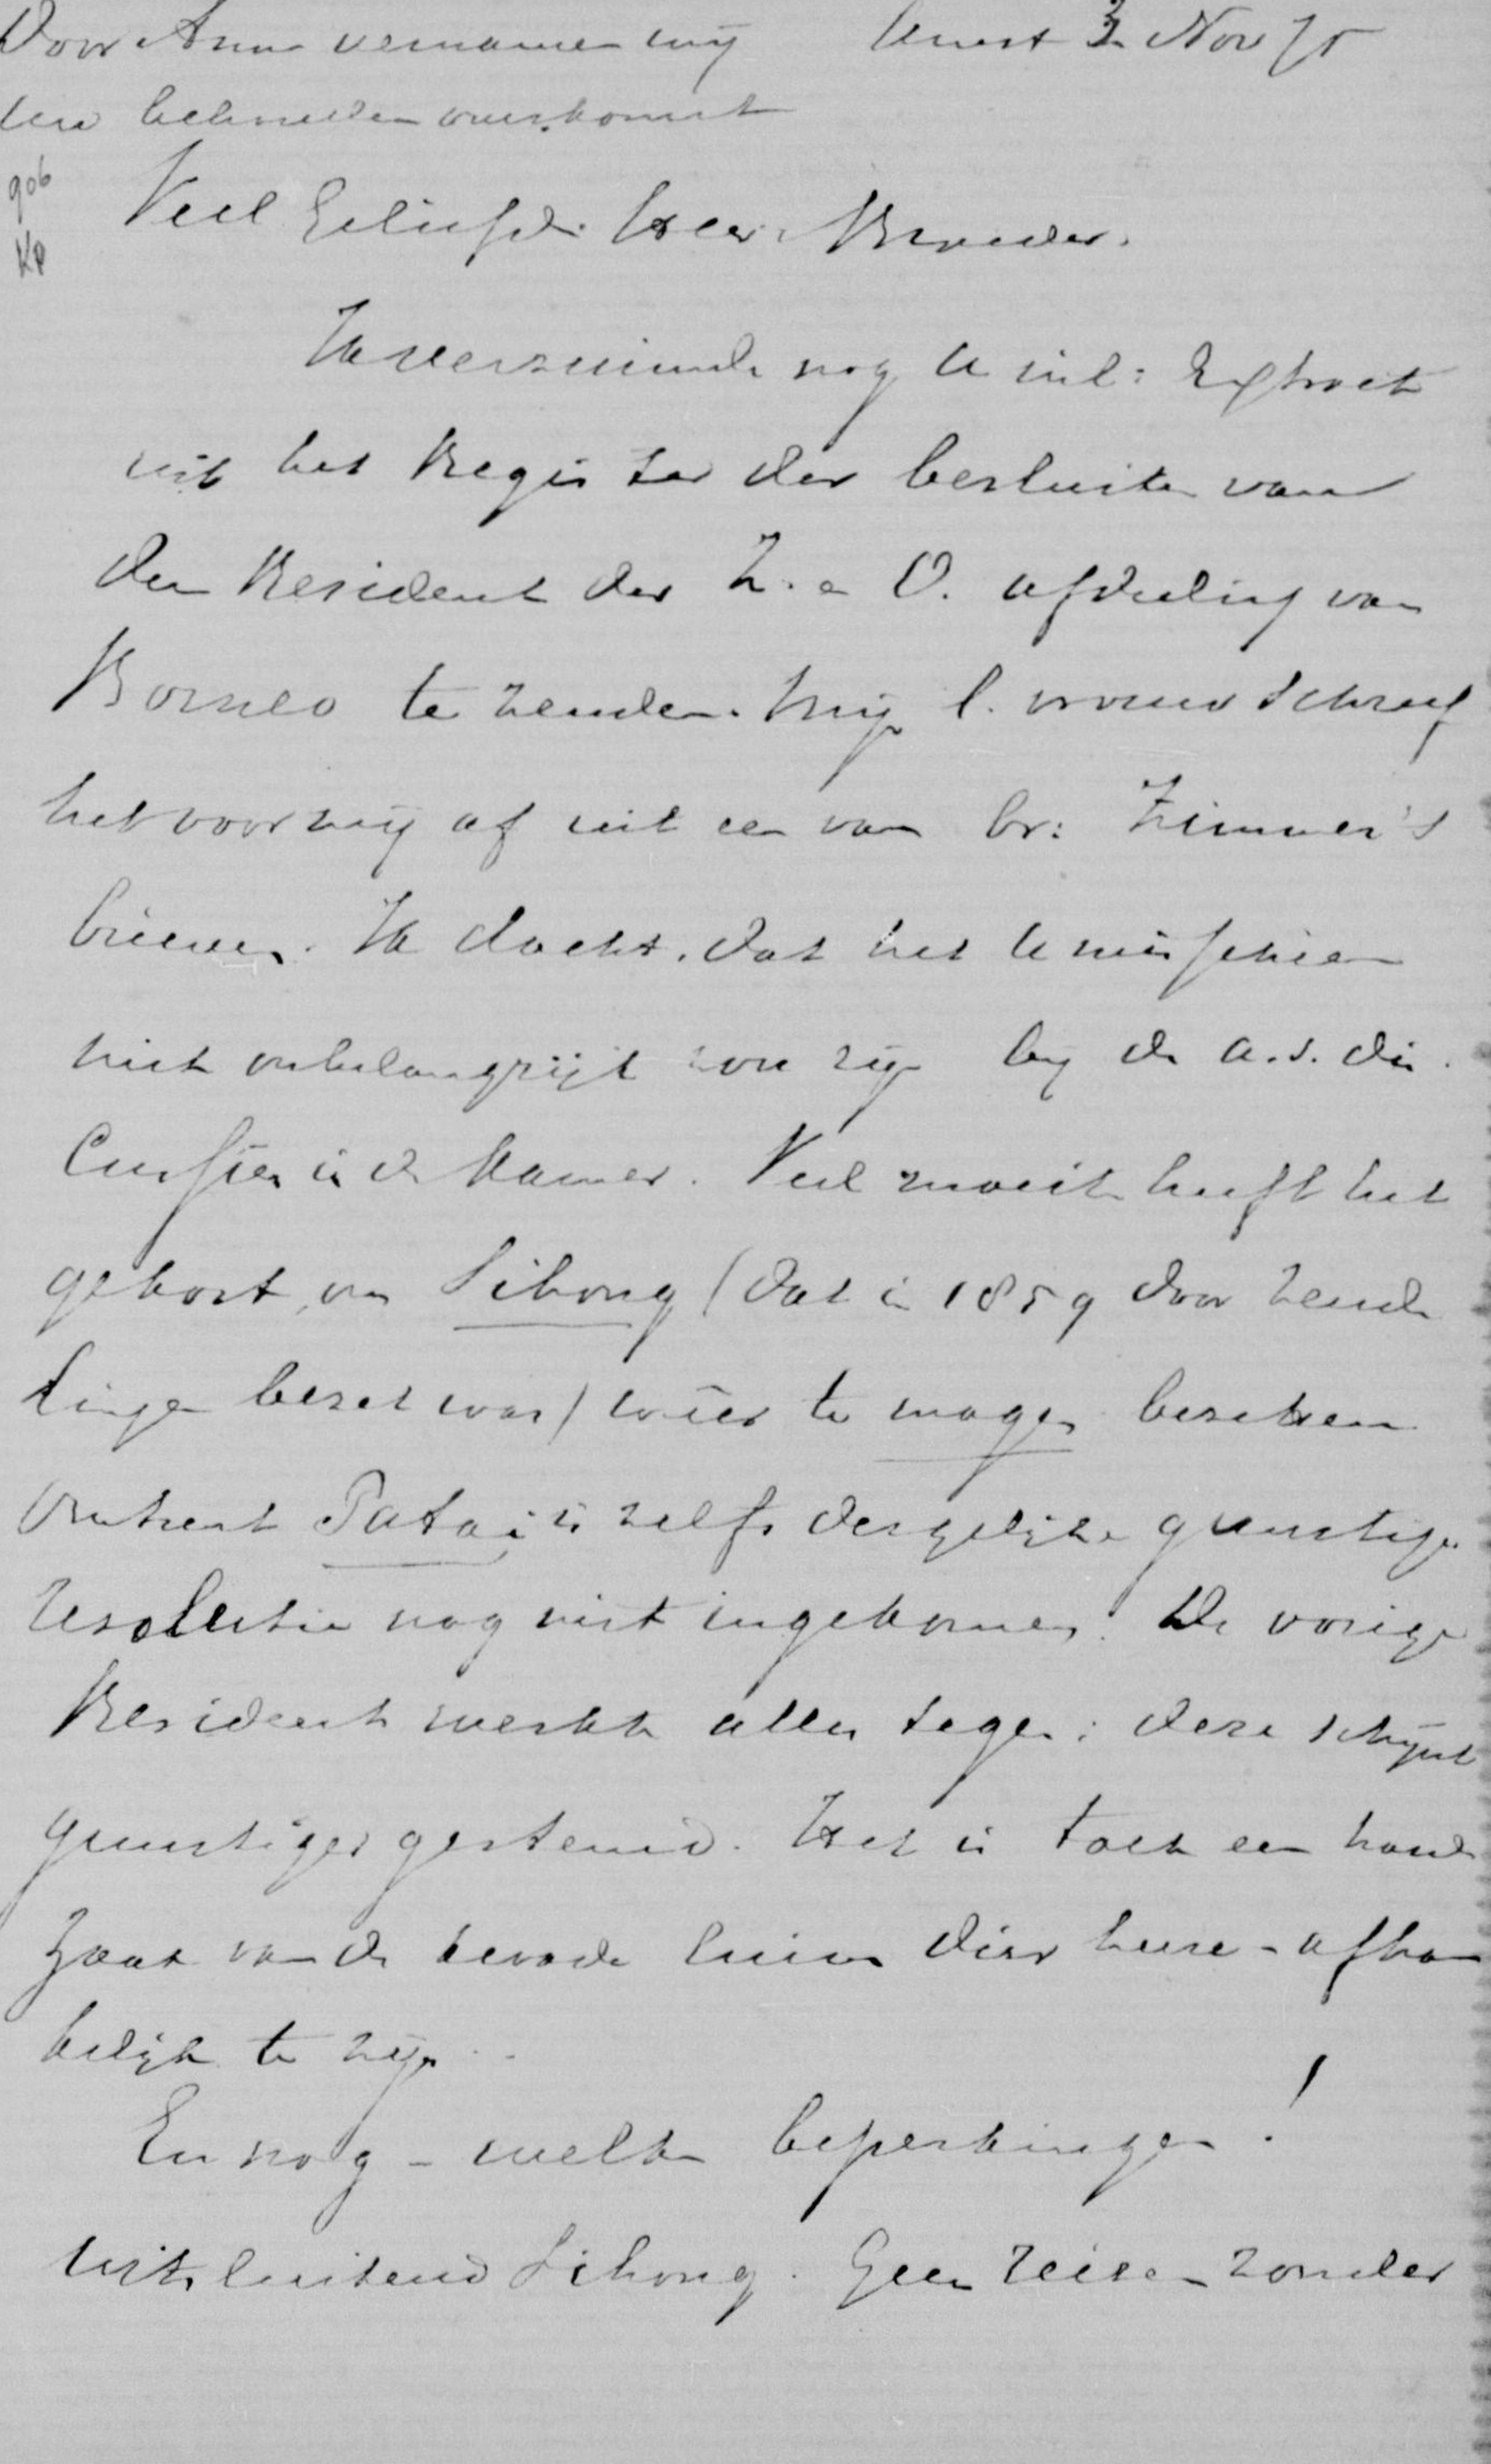 Door Anna vernamen wij Soest 3 Nov 75
uw behouden overkomst
906
KP
Veel Geliefde Heer & Broeder.
Ik verzuimde nog U inl: Extract
uit het Register der besluiten van
den Resident der Z. en O. afdeeling van
Borneo te zenden. Mijn l. vrouw schreef
het voor mij af uit een van br: Zimmer's
brieven. Ik dacht, dat het U misschien
niet onbelangrijk zou zijn bij de a.s. dis-
cussien in de Kamer. Veel moeite heeft het
gekost om Sihong (dat in 1859 door zende
lingen bezet was) weer te mogen bezetten
Omtrent Patai is zelfs dergelijke gunstige
resolutie nog niet ingekomen. De vorige
Resident werkte alles tegen; deze schijnt
gunstiger gestemd. Het is toch een
van de luim dier heeren afhan
kelijk te zijn.
En nog – welke beperkingen!
Uitsluitend Sihong. Geen reizen zonder